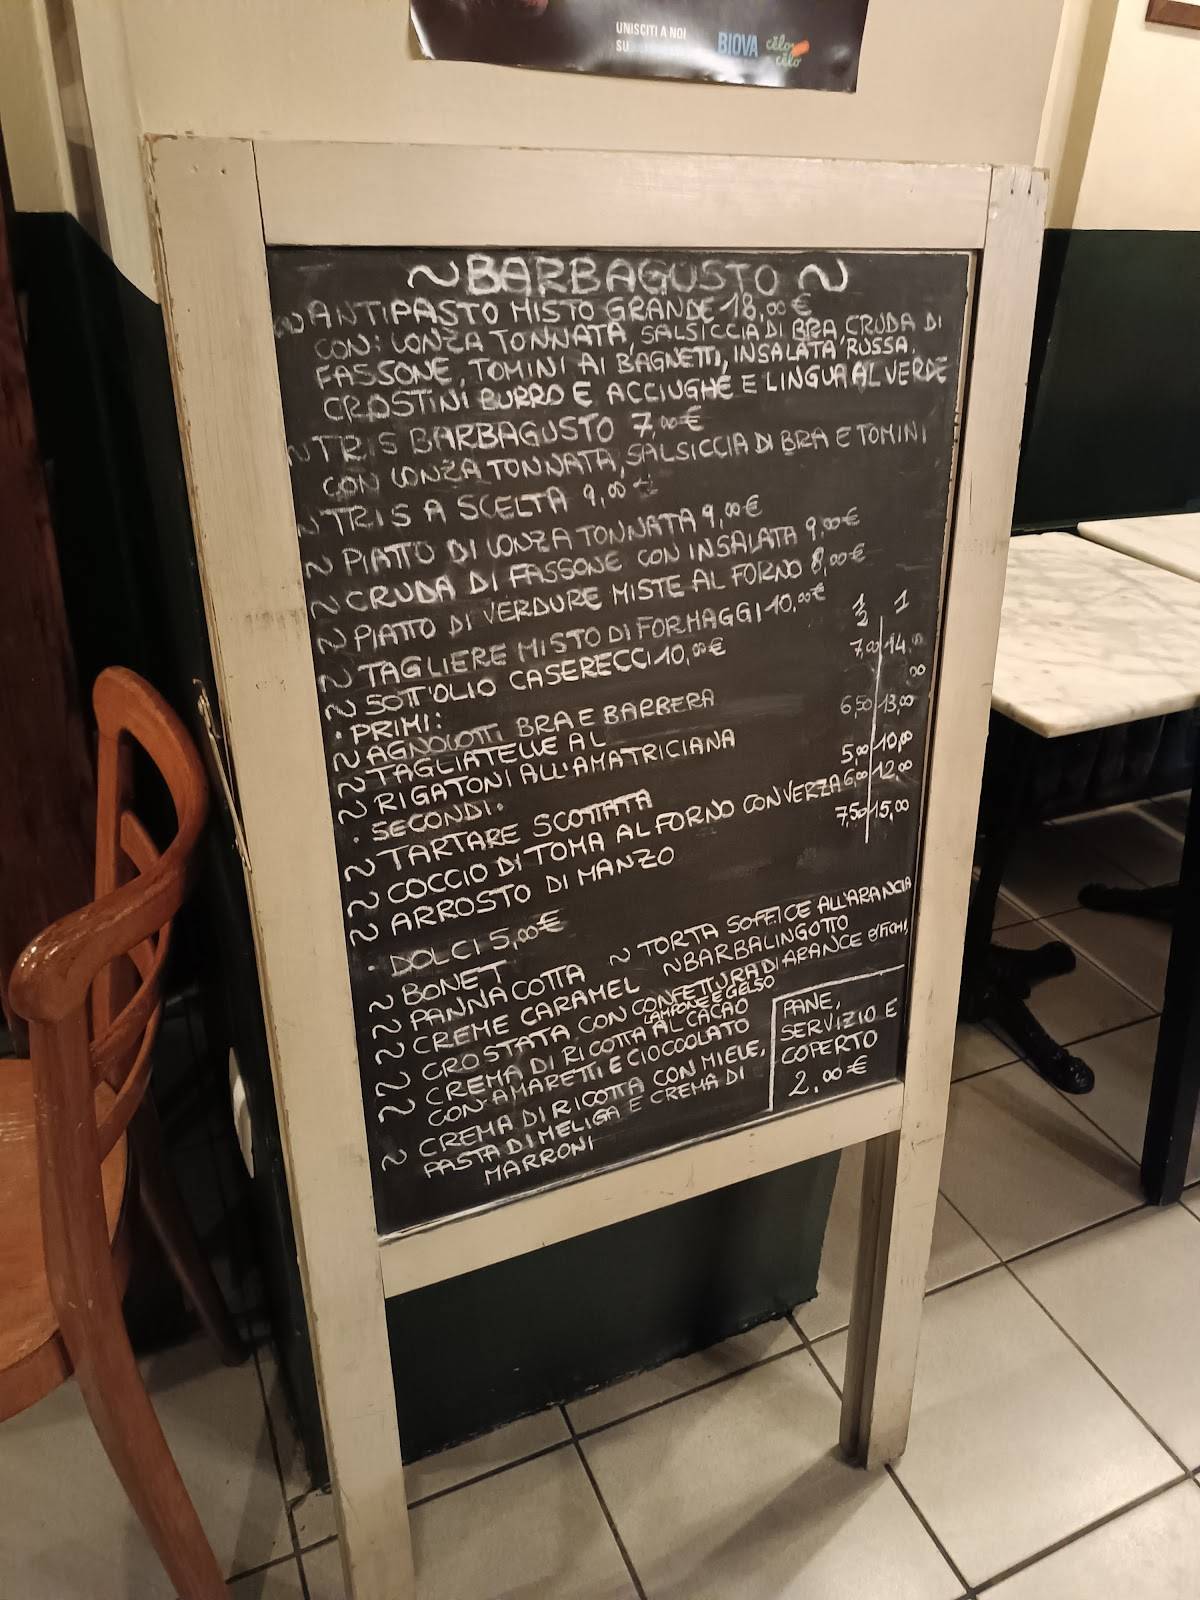 UNISCITI A NOI
SU
BIOVA
cĕlo
cĕlo
~BARBAGUSTO~
~ANTIPASTO MISTO GRANDE 18,00€
CON: LONZA TONNATA, SALSICCIA DI BRA, CRUDA DI
FASSONE, TOMINI AI BAGNETTI, INSALATA RUSSA,
CROSTINI BURRO E ACCIUGHE E LINGUA AL VERDE
~TRIS BARBAGUSTO 7,00€
CON LONZA TONNATA, SALSICCIA DI BRA E TOMINI
~TRIS A SCELTA 9,00
~PIATTO DI LONZA TONNATA 9,00€
~CRUDA DI FASSONE CON INSALATA 9,00€
~PIATTO DI VERDURE MISTE AL FORNO 8,00€
~TAGLIERE MISTO DI FORMAGGI 10,00€
~SOTT'OLIO CASERECCI 10,00€
1/2 1
· PRIMI:
~AGNOLOTTI BRA E BARBERA 7,00 14,00
~TAGLIATELLE AL
~RIGATONI ALL'AMATRICIANA 6,50 13,00
· SECONDI:
~TARTARE SCOTTATA 5,00 10,00
~COCCIO DI TOMA AL FORNO CON VERZA 6,00 12,00
~ARROSTO DI MANZO 7,50 15,00
· DOLCI 5,00€
~BONET ~TORTA SOFFICE ALL'ARANCIA
~PANNA COTTA ~BARBALINGOTTO
~CREME CARAMEL
~CROSTATA CON CONFETTURA DI ARANCE O FICHI,
LAMPONE E GELSO
~CREMA DI RICOTTA AL CACAO
CON AMARETTI E CIOCCOLATO
~CREMA DI RICOTTA CON MIELE,
PASTA DI MELIGA E CREMA DI
MARRONI
PANE,
SERVIZIO E
COPERTO
2,00€